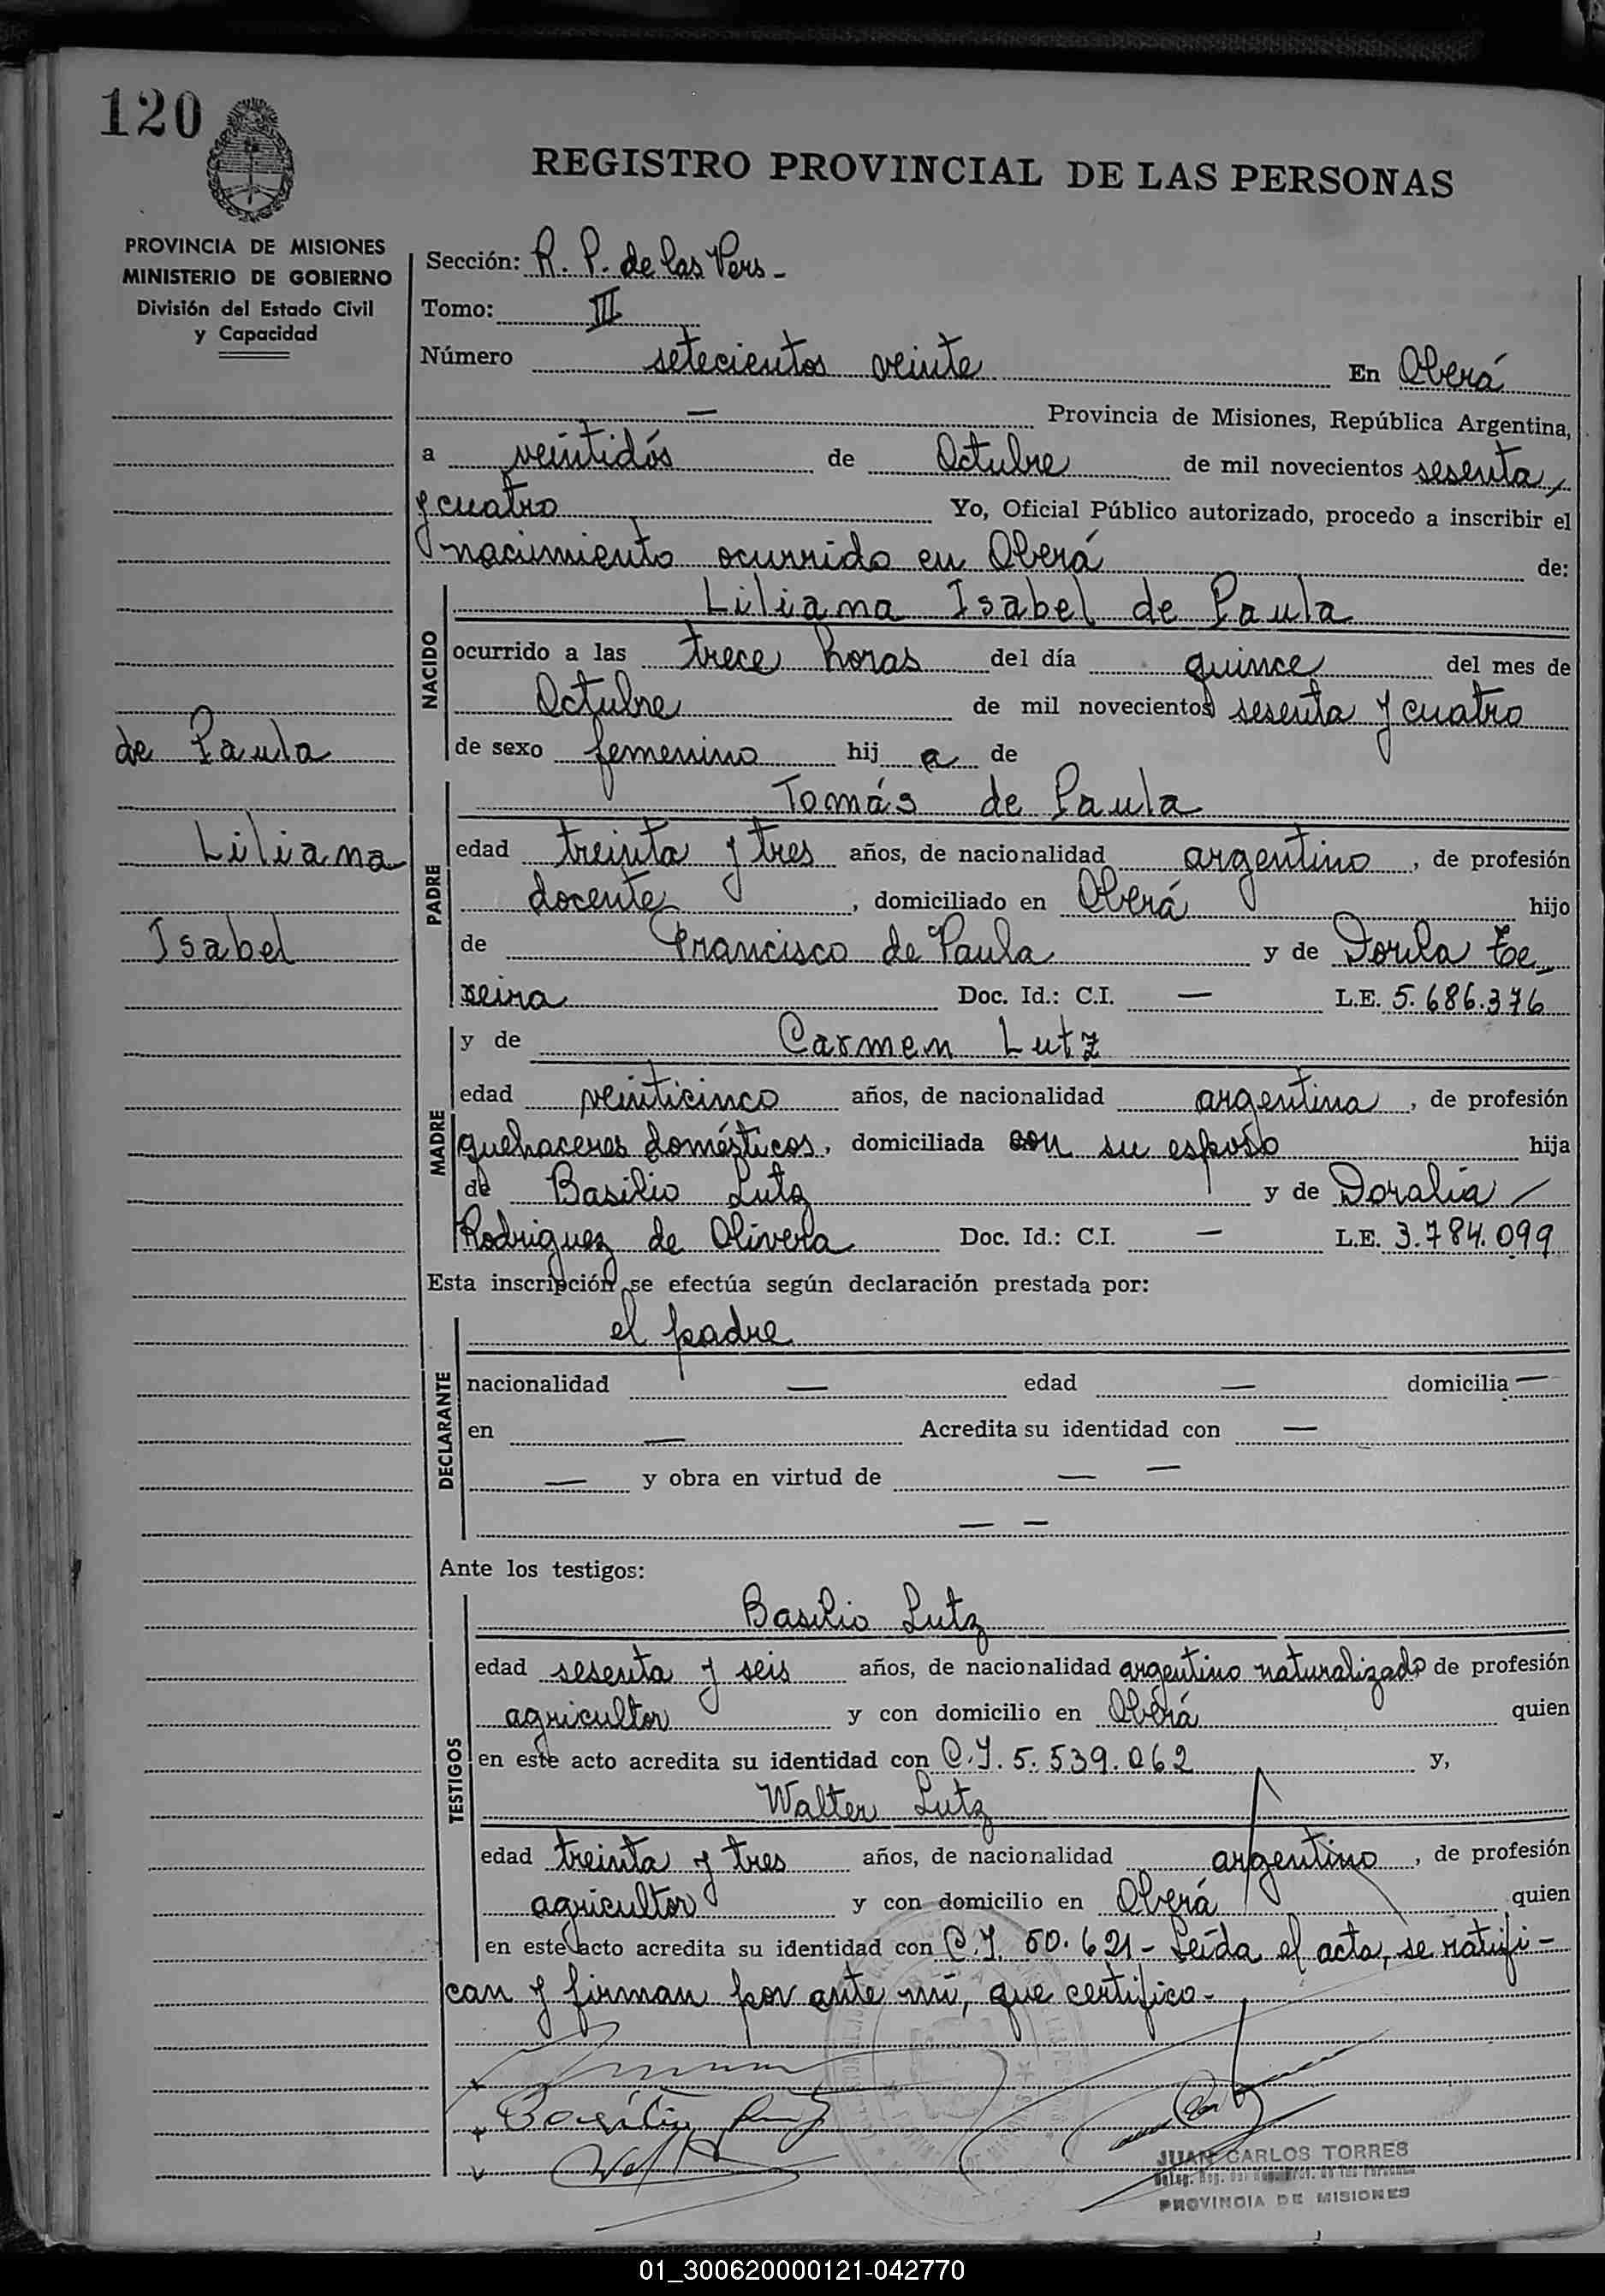 120
REGISTRO PROVINCIAL DE LAS PERSONAS
PROVINCIA DE MISIONES
MINISTERIO DE GOBIERNO
División del Estado Civil
y Capacidad
Sección: R. P. de las Pers -
Tomo: III
Número setecientos veinte En Oberá
— Provincia de Misiones, República Argentina,
a veintidós de Octubre de mil novecientos sesenta
y cuatro Yo, Oficial Público autorizado, procedo a inscribir el
nacimiento ocurrido en Oberá de:
NACIDO
Liliana Isabel de Paula
ocurrido a las trece horas del día quince del mes de
Octubre de mil novecientos sesenta y cuatro
de sexo femenino hij a de
de Paula
Liliana
Isabel
PADRE
Tomás de Paula
edad treinta y tres años, de nacionalidad argentino, de profesión
docente, domiciliado en Oberá hijo
de Francisco de Paula y de Dorila Te
xeira Doc. Id.: C.I. — L.E. 5.686.376
MADRE
y de Carmen Lutz
edad veinticinco años, de nacionalidad argentina, de profesión
quehaceres domésticos, domiciliada con su esposo hija
de Basilio Lutz y de Doralia /
Rodriguez de Olivera Doc. Id.: C.I. — L.E. 3.784.099
Esta inscripción se efectúa según declaración prestada por:
DECLARANTE
el padre
nacionalidad — edad — domicilia —
en — Acredita su identidad con —
— y obra en virtud de — —
— —
Ante los testigos:
TESTIGOS
Basilio Lutz
edad sesenta y seis años, de nacionalidad argentino naturalizado de profesión
agricultor y con domicilio en Oberá quien
en este acto acredita su identidad con C.I. 5.539.062 y,
Walter Lutz
edad treinta y tres años, de nacionalidad argentino, de profesión
agricultor y con domicilio en Oberá quien
en este acto acredita su identidad con C.I. 50.621 - Leída el acta, se ratifi-
can y firman por ante mí, que certifico -
Basilio Lutz
JUAN CARLOS TORRES
PROVINCIA DE MISIONES
01_300620000121-042770